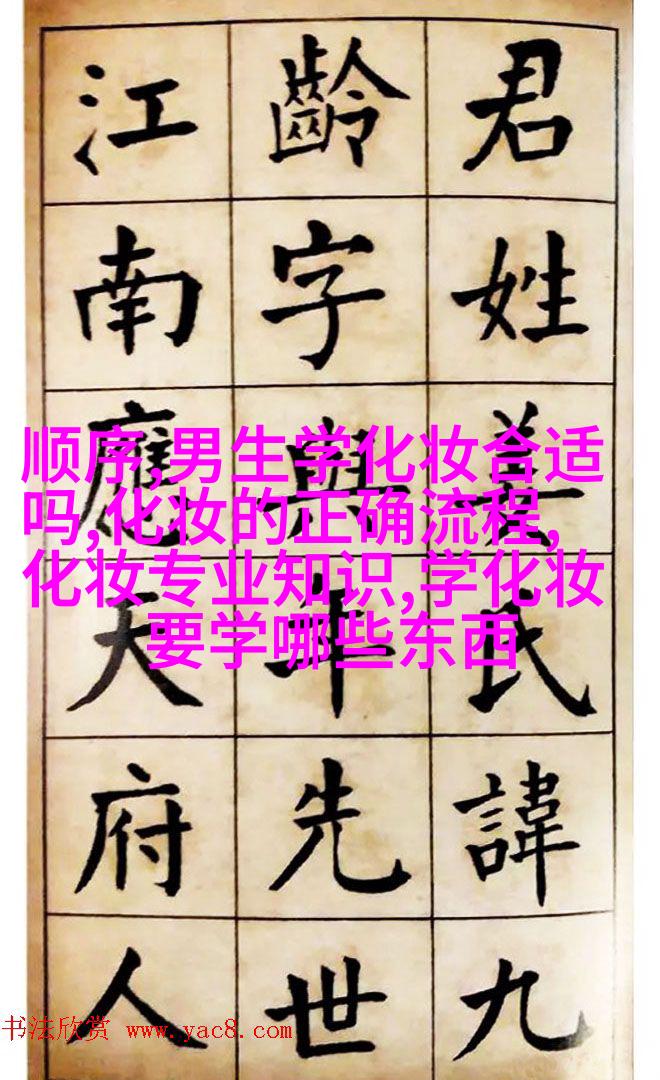 君姓姜氏諱九
齡字與年先世
江南應天府人
顺序,男生学化妆合适
吗,化妆的正确流程,
化妆专业知识,学化妆
要学哪些东西
书法欣赏 www.yac8.com